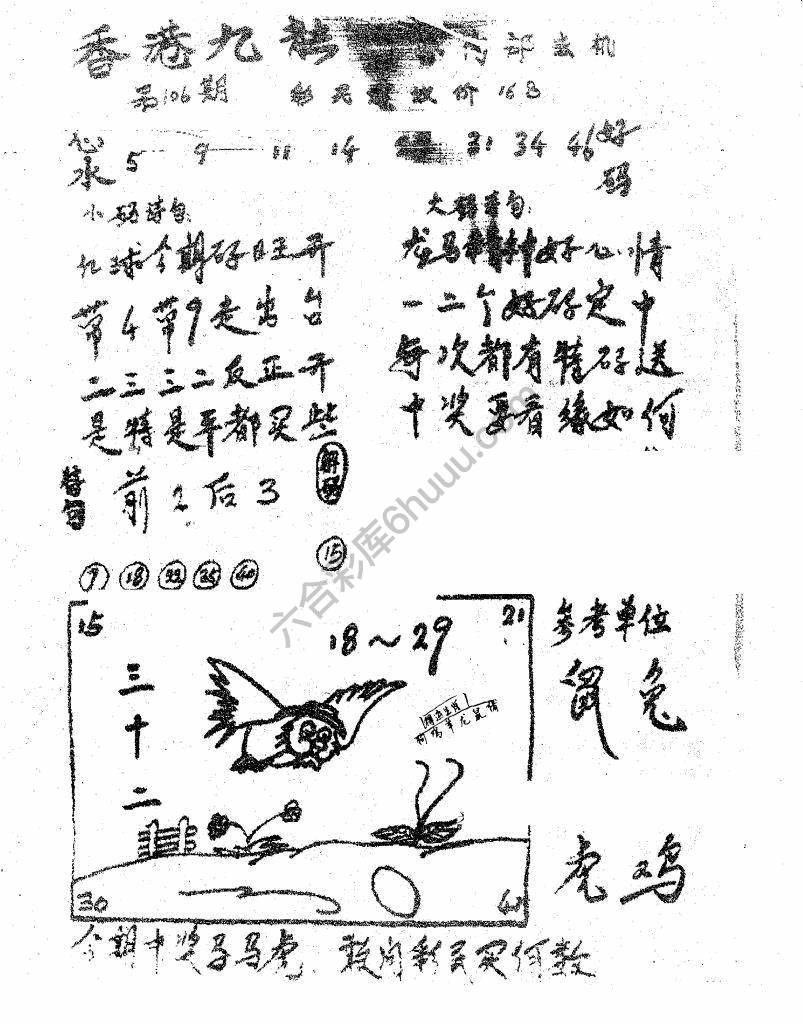 香港九龙 内部玄机
第106期 彩民 价16B
心水 5 9 11 14 31 34 46 好码
小码诗句:
大码诗句:
红球今期码旺开
带4带9走出台
二三三二反正开
是特是平都买些
龙马精神好心情
一二个好码定中
每次都有特码送
中奖要看缘如何
特句 前2后3
解码
7 18 22 25 40
15
15
18~29
21
三十二
30
参考单位
鼠兔
虎鸡
今期中奖马虎 敢问彩民买何数
六合彩库6huuu.com